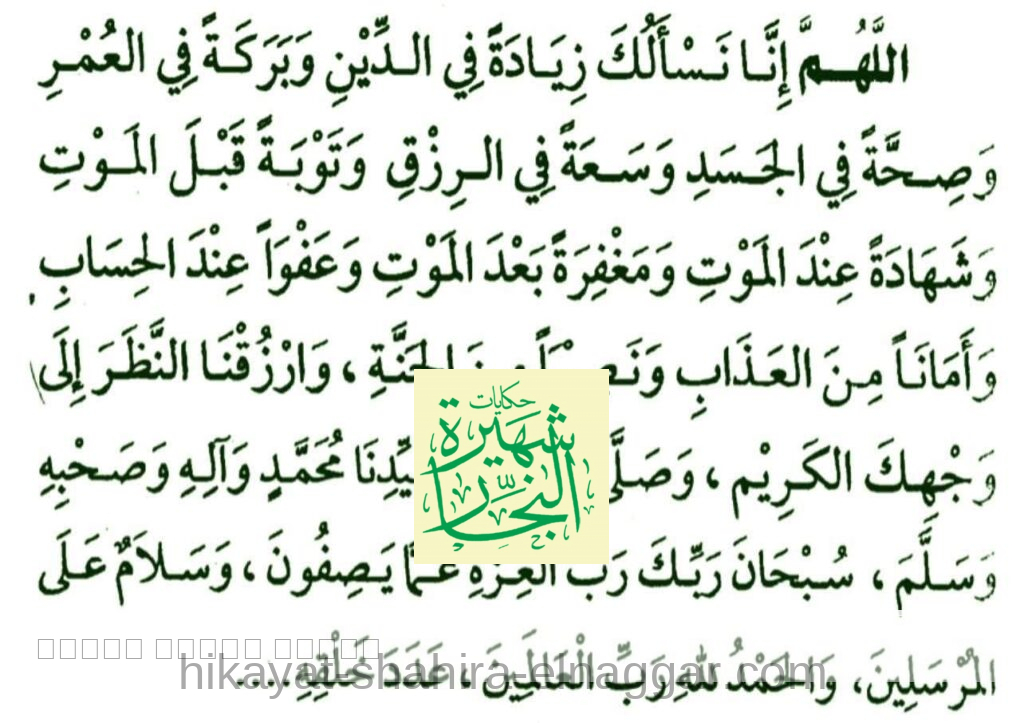 اللَّهُمَّ إِنَّا نَسْأَلُكَ زِيَادَةً فِي الدِّيْنِ وَبَرَكَةً فِي العُمْرِ
وَصِحَّةً فِي الجَسَدِ وَسَعَةً فِي الرِزْقِ وَتَوْبَةً قَبْلَ المَوْتِ
وَشَهَادَةً عِنْدَ المَوْتِ وَمَغْفِرَةً بَعْدَ المَوْتِ وَعَفْوَاً عِنْدَ الحِسَابِ
وَأَمَانَاً مِنَ العَذَابِ الجَنَّةِ ، وَارْزُقْنَا النَّظَرَ إِلَى
وَجْهِكَ الكَرِيْمِ ، وَصَلَّى مُحَمَّدٍ وَآلِهِ وَصَحْبِهِ
وَسَلَّمَ ، سُبْحَانَ رَبِّكَ رَبِّ العِزَّةِ عَمَّا يَصِفُونَ ، وَسَلاَمٌ عَلَى
المُرْسَلِينَ، وَالحَمْدُ للهِ رَبِّ الْعَالَمِينَ ، عَدَدَ خَلْقِهِ....
حكايات
شهيرة
النجار
hikayat-shahira-elnaggar.com